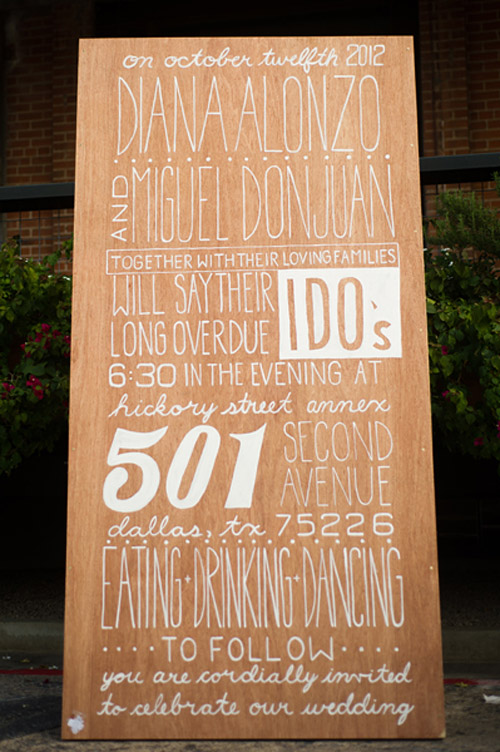 on october twelfth 2012
DIANA ALONZO
AND MIGUEL DONJUAN
TOGETHER WITH THEIR LOVING FAMILIES
WILL SAY THEIR
LONG OVERDUE
IDO's
6:30 IN THE EVENING AT
hickory street annex
501
SECOND
AVENUE
dallas, tx 75226
EATING • DRINKING • DANCING
TO FOLLOW
you are cordially invited
to celebrate our wedding